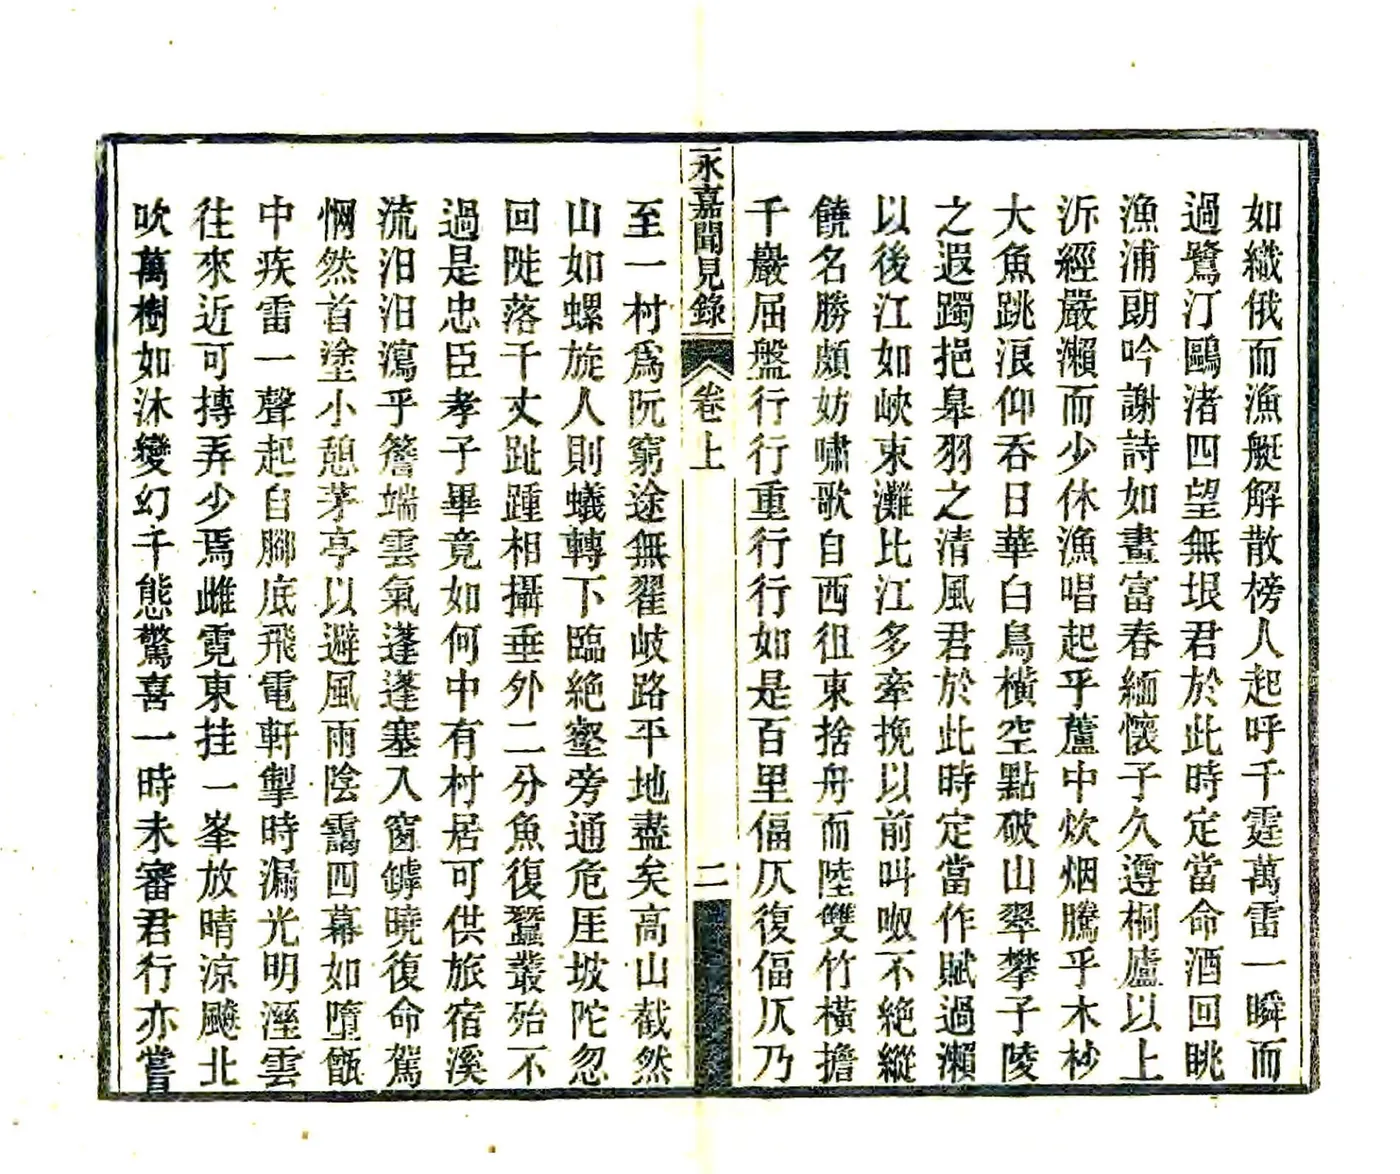 如織俄而漁艇解散榜人起呼千霆萬雷一瞬而
過鷺汀鷗渚四望無垠君於此時定當命酒回眺
漁浦朗吟謝詩如畫富春緬懷子久遵桐廬以上
泝經嚴瀨而少休漁唱起乎蘆中炊烟騰乎木杪
大魚跳浪仰吞日華白鳥橫空點破山翠攀子陵
之遐躅挹皋羽之清風君於此時定當作賦過瀨
以後江如峽束灘比江多牽挽以前叫呶不絕縱
饒名勝頗妨嘯歌自西徂東捨舟而陸雙竹橫擔
千巖屈盤行行重行行如是百里偪仄復偪仄乃
永嘉聞見錄
卷上
二
至一村爲阮窮途無翟岐路平地盡矣高山截然
山如螺旋人則蟻轉下臨絕壑旁通危厓坡陀忽
回陡落千丈趾踵相攝垂外二分魚復蠶叢殆不
過是忠臣孝子畢竟如何中有村居可供旅宿溪
流汨汨瀉乎簷端雲氣蓬蓬塞入窗罅曉復命駕
惘然首塗小憩茅亭以避風雨陰靄四幕如墮甑
中疾雷一聲起自腳底飛電軒掣時漏光明溼雲
往來近可摶弄少焉雌霓東挂一峯放晴涼颸北
吹萬樹如沐變幻千態驚喜一時未審君行亦嘗